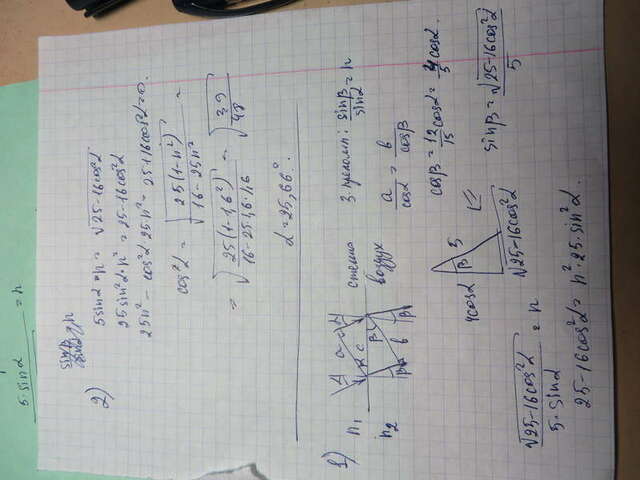 5·sinα = n
2)
5sinα·n = √25-16cos²α
25sin²α·n² = 25-16cos²α
25n² - cos²α 25n² - 25+16cos²α=0.
cos²α = √25(1-n²)/16-25n² =
= √25(1-1,6²)/16-25·1,6·1,6 = √39/48
α=25,66°.
1) n₁ a c стекло
n₂ β b воздух
3. преломл: sinβ/sinα = n
a/cosα = b/cosβ
cosβ = 12/15 cosα = 4/5 cosα.
4cosα β 5 √25-16cos²α
sinβ = √25-16cos²α/5
√25-16cos²α/5·sinα = n
25-16cos²α = n²·25·sin²α.